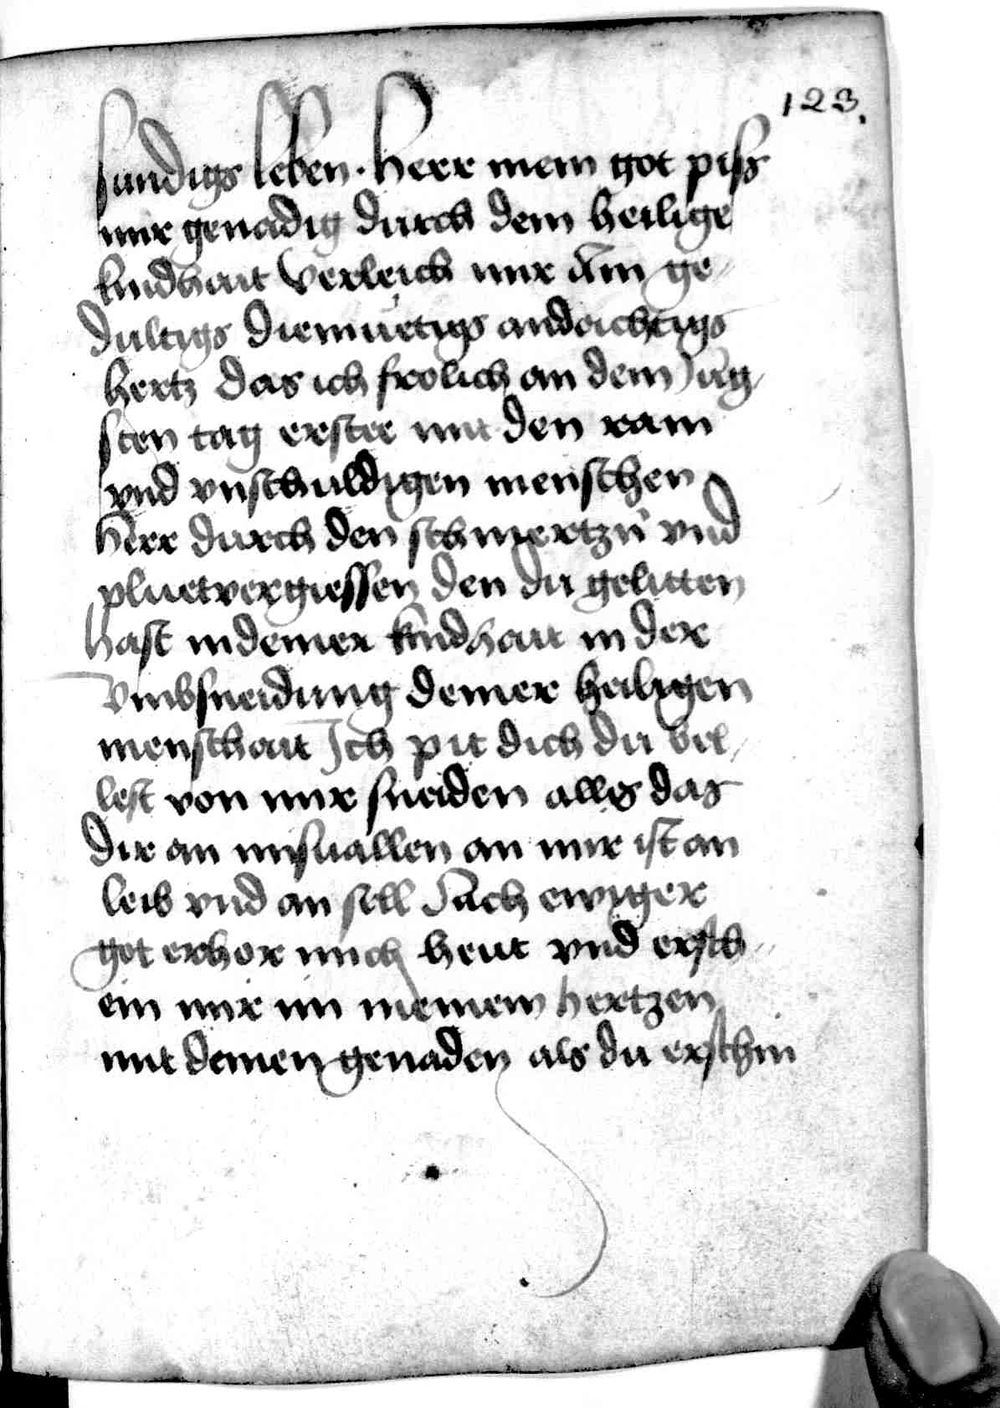 123.
sundigs leben. Herr mein got piss
mir genadig durch dein heilige
kindhait Verleich mir ain ge-
dultigs diemuetigs andachtigs
hertz das ich frolich an dem Jung-
sten tag erstee mit den rain
vnd vnschuldigen menschen
Herr durch den schmertzn vnd
pluetvergiessen den du gelitten
hast in deiner kindhait in der
Vmbsneidung deiner heiligen
menschait Ich pit dich du bel-
lest von mir sneiden alles das
dir an missuallen an mir ist an
leib vnd an sell Auch ewiger
got erhor mich heut vnd ersch-
ein mir im meinem hertzen
mit deinen genaden als du erschin